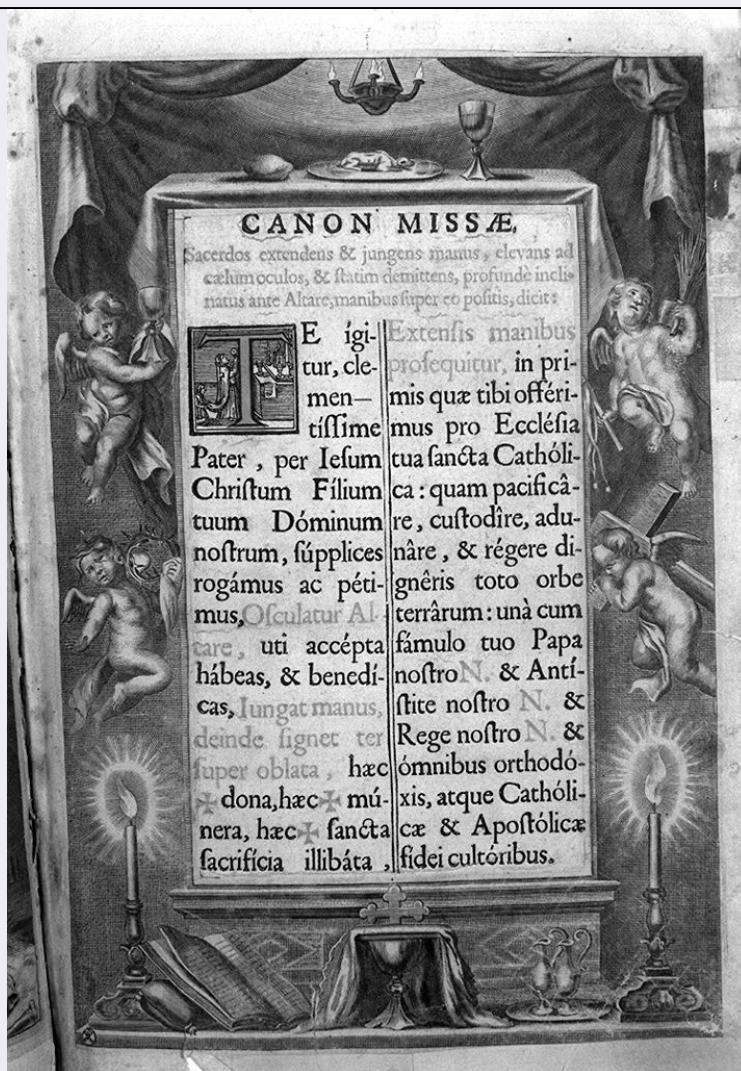 CANON MISSÆ.
Sacerdos extendens & jungens manus, elevans ad
cælum oculos, & ſtatim demittens, profundè incli-
natus ante Altare, manibus ſuper eo poſitis, dicit:
TE ígi-
tur, cle-
men—
tíſſime
Pater, per Ieſum
Chriſtum Fílium
tuum Dóminum
noſtrum, ſúpplices
rogámus ac péti-
mus, Oſculatur Al-
tare, uti accépta
hábeas, & benedí-
cas, Iungat manus,
deinde ſignet ter
ſuper oblata, hæc
✠ dona, hæc ✠ mú-
nera, hæc ✠ ſancta
ſacrifícia illibáta,
Extenſis manibus
proſequitur, in pri-
mis quæ tibi offéri-
mus pro Eccléſia
tua ſancta Cathóli-
ca: quam pacificâ-
re, cuſtodîre, adu-
nâre, & régere di-
gnêris toto orbe
terrârum: unà cum
fámulo tuo Papa
noſtro N. & Antí-
ſtite noſtro N. &
Rege noſtro N. &
ómnibus orthodó-
xis, atque Cathóli-
cæ & Apoſtólicæ
fidei cultóribus.